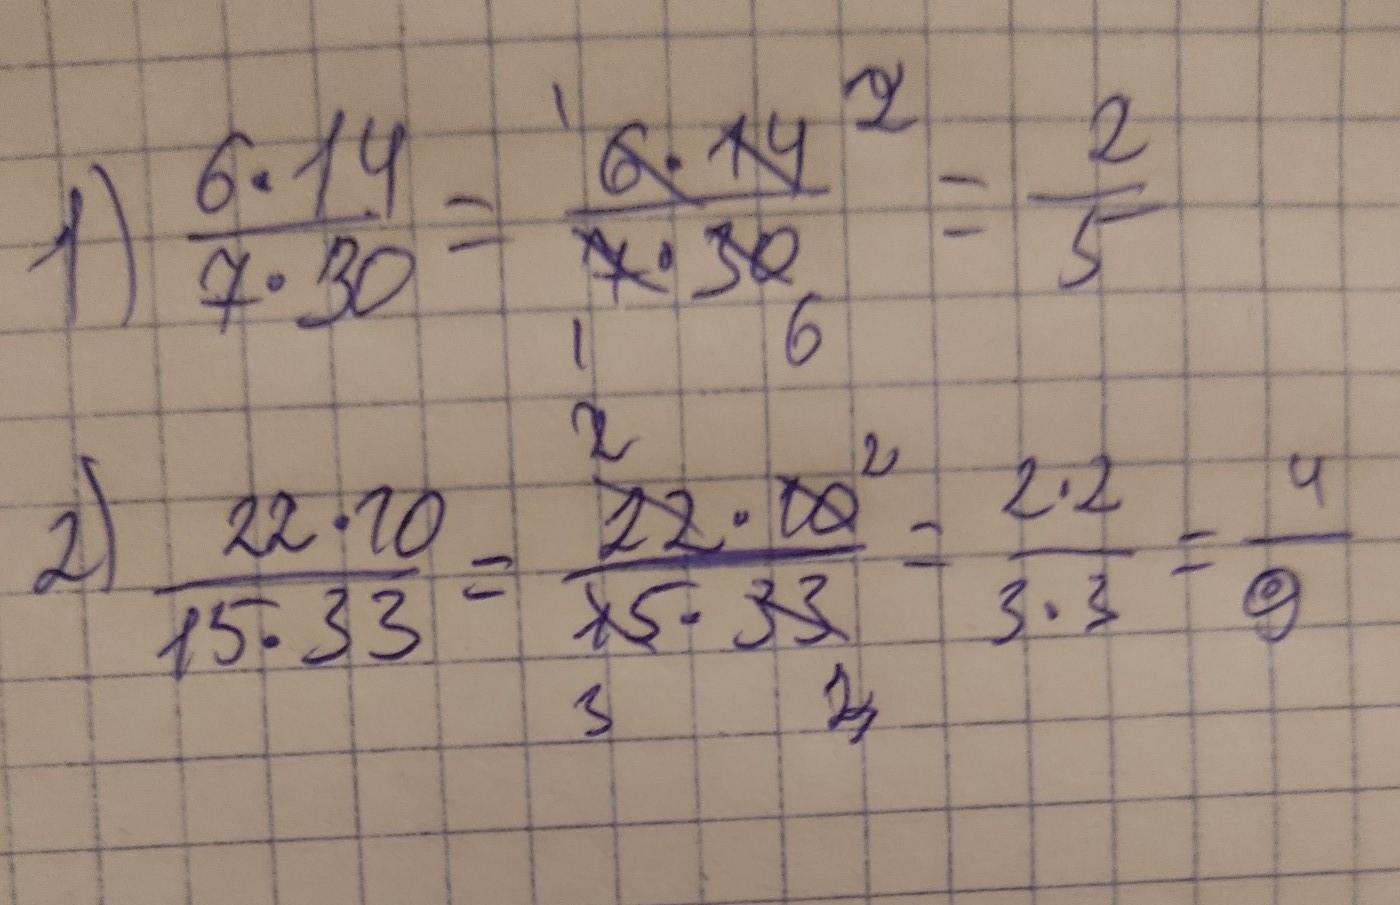 1) 6·14/7·30 = 6·14/7·30 = 2/5
1 2
1 6
2) 22·10/15·33 = 22·10/15·33 = 2·2/3·3 = 4/9
2 2
3